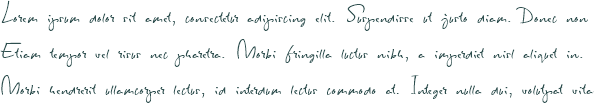 Lorem ipsum dolor sit amet, consectetur adipiscing elit. Suspendisse ut justo diam. Donec non
Etiam tempor vel risus nec pharetra. Morbi fringilla luctus nibh, a imperdiet nisl aliquet in.
Morbi hendrerit ullamcorper lectus, id interdum lectus commodo at. Integer nulla dui, volutpat vita